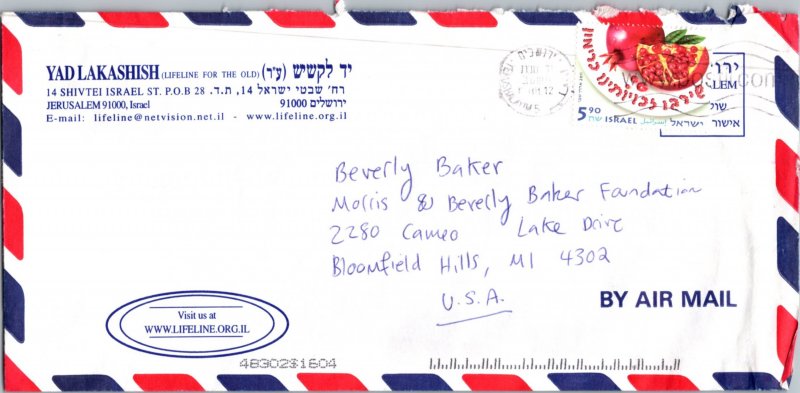 YAD LAKASHISH (LIFELINE FOR THE OLD) (ע"ר) יד לקשיש
14 SHIVTEI ISRAEL ST. P.O.B 28 רח' שבטי ישראל 14, ת.ד.
JERUSALEM 91000, Israel ירושלים 91000
E-mail: lifeline@netvision.net.il - www.lifeline.org.il
ירושלים
שירבו זכויותינו כרימון
5.90 ISRAEL إسرائيل
LEM
אישור ישראל
Beverly Baker
Morris & Beverly Baker Foundation
2280 Cameo Lake Drive
Bloomfield Hills, MI 4302
U.S.A.
BY AIR MAIL
Visit us at
WWW.LIFELINE.ORG.IL
48302$1604